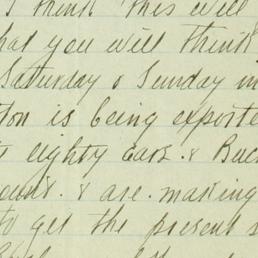 I think this will
hat you will think
Saturday & Sunday in
ton is being exporte
eighty Cars. & Buc
ount. & are making
to get the present s